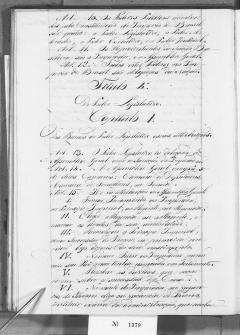 Art. 10. Os Poderes Politicos reconheci-
dos pela Constituição do Imperio do Brasil
são quatro: o Poder Legislativo, o Poder Mo-
derador, o Poder Executivo, e o Poder Judicial.
Art. 11. Os Representantes da Nação Bra-
sileira são o Imperador, e a Assembléa Geral.
Art. 12. Todos estes Poderes no Im-
perio do Brasil são delegações da Nação.
Titulo 4.
Do Poder Legislativo.
Capitulo 1.
Dos Ramos do Poder Legislativo, suas attribuições
Art. 13. O Poder Legislativo he delegado á
Assembléa Geral com a Sancção do Imperador.
Art. 14. A Assembléa Geral compõe-se
de duas Camaras: Camara de Deputados, e
Camara de Senadores, ou Senado.
Art. 15. He da attribuição da Assembléa Geral
I. Tomar Juramento ao Imperador,
ao Principe Imperial, ao Regente, ou Regencia.
II. Eleger a Regencia, ou o Regente, e
marcar os limites da sua autoridade.
III. Reconhecer o Principe Imperial,
como Successor do Throno, na primeira reu-
nião logo depois do seu nascimento.
IV. Nomear Tutor ao Imperador menor,
caso seu Pai o não tenha nomeado em Testamento.
V. Resolver as duvidas, que occor-
rerem sobre a successão da Corôa.
VI. Na morte do Imperador, ou vacan-
cia do Throno,
Nº 1379